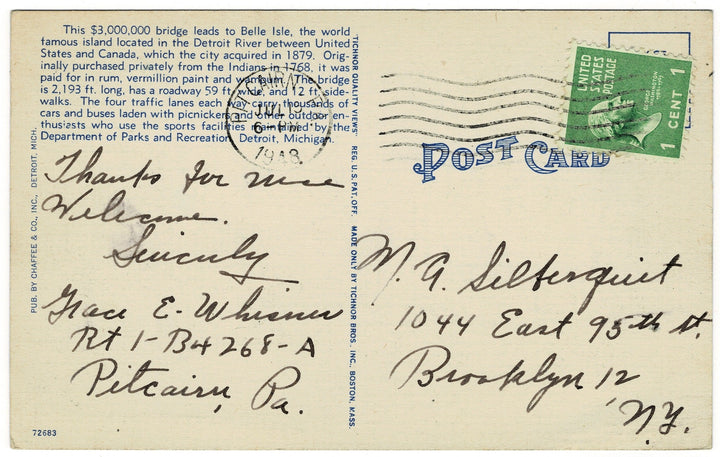 This $3,000,000 bridge leads to Belle Isle, the world
famous island located in the Detroit River between United
States and Canada, which the city acquired in 1879. Orig-
inally purchased privately from the Indians in 1768, it was
paid for in rum, vermillion paint and wampum. The bridge
is 2,193 ft. long, has a roadway 59 ft. wide, and 12 ft. side-
walks. The four traffic lanes each way carry thousands of
cars and buses laden with picnickers and other outdoor en-
thusiasts who use the sports facilities maintained by the
Department of Parks and Recreation, Detroit, Michigan.
PUB. BY CHAFFEE & CO., INC., DETROIT, MICH.
TICHNOR QUALITY VIEWS REG. U.S. PAT. OFF. MADE ONLY BY TICHNOR BROS., INC., BOSTON, MASS.
JUL 12
6 - PM
1948
UNITED
STATES
POSTAGE
GEORGE
WASHINGTON
1 CENT 1
POST CARD
Thanks for nice
Welcome.
Sincerely
Grace E. Whisner
Rt 1-B4 268-A
Pitcairn, Pa.
M. A. Silberquit
1044 East 95th st.
Brooklyn 12
N.Y.
72683